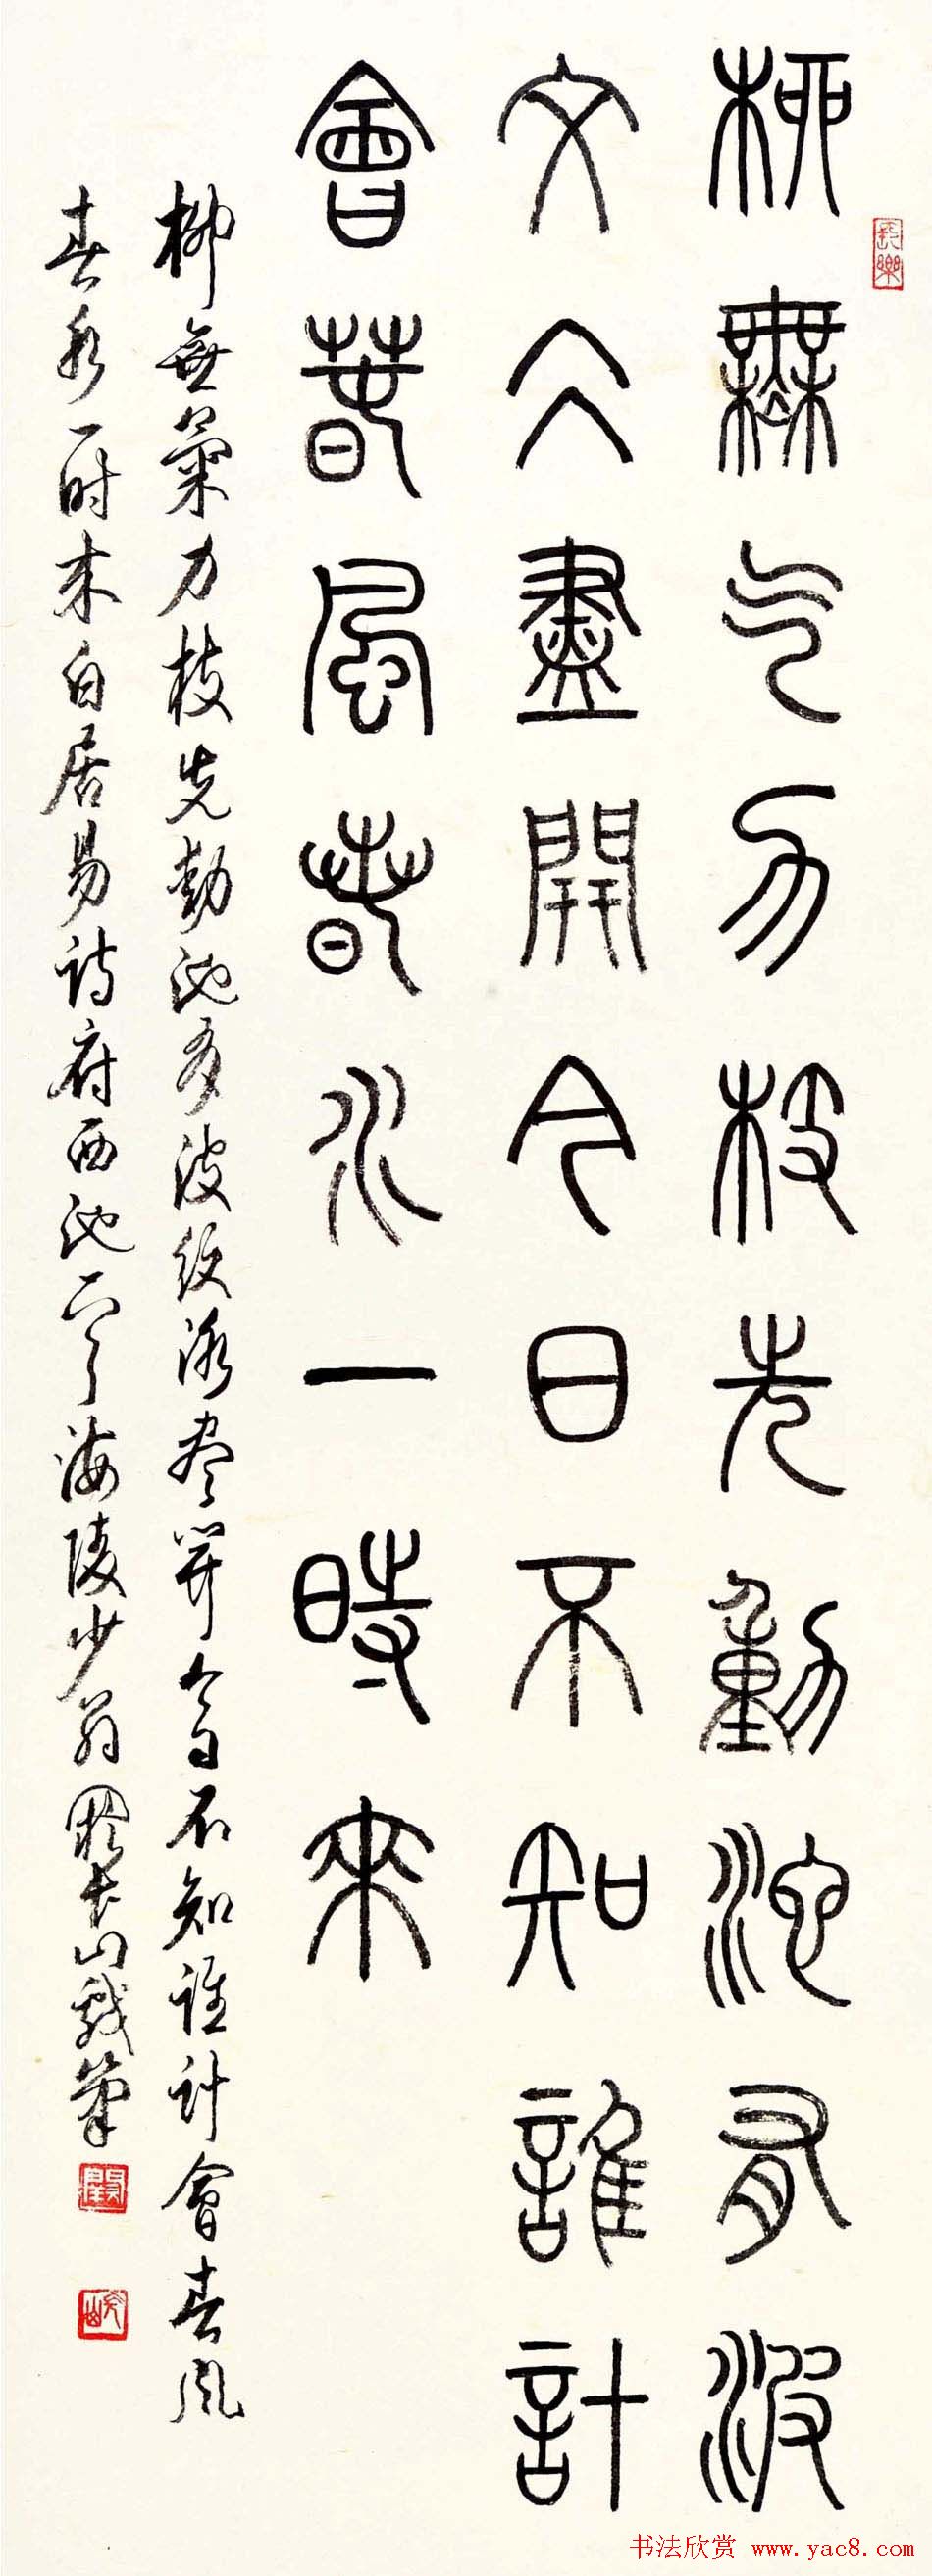 長樂
柳無气力枝先動池有波
文仌盡開今日不知誰計
會春風春水一時來
柳無氣力枝先動池有波紋冰尽開今日不知誰計會春風
春水一时来白居易詩府西池海陵少翁山戏筆
书法欣赏 www.yac8.com